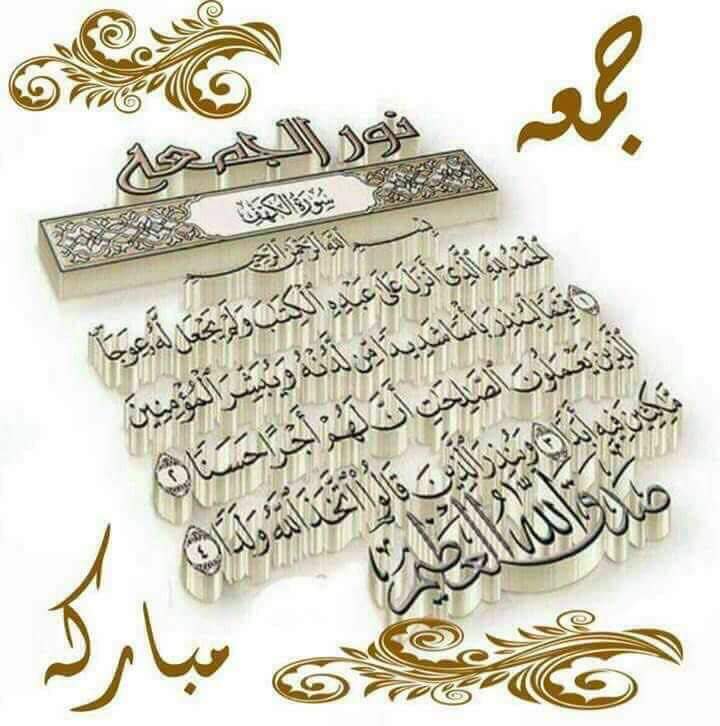 جمعه
نور الجمعه
سُورَةُ الْكَهْفِ
بِسْمِ اللَّهِ الرَّحْمَٰنِ الرَّحِيمِ
الْحَمْدُ لِلَّهِ الَّذِي أَنزَلَ عَلَىٰ عَبْدِهِ الْكِتَٰبَ وَلَمْ يَجْعَل لَّهُ عِوَجَا
١ قَيِّمًا لِّيُنذِرَ بَأْسًا شَدِيدًا مِّن لَّدُنْهُ وَيُبَشِّرَ الْمُؤْمِنِينَ
الَّذِينَ يَعْمَلُونَ الصَّٰلِحَٰتِ أَنَّ لَهُمْ أَجْرًا حَسَنًا ٢
مَّٰكِثِينَ فِيهِ أَبَدًا ٣ وَيُنذِرَ الَّذِينَ قَالُوا اتَّخَذَ اللَّهُ وَلَدًا ٤
صدق الله العظيم
مباركه